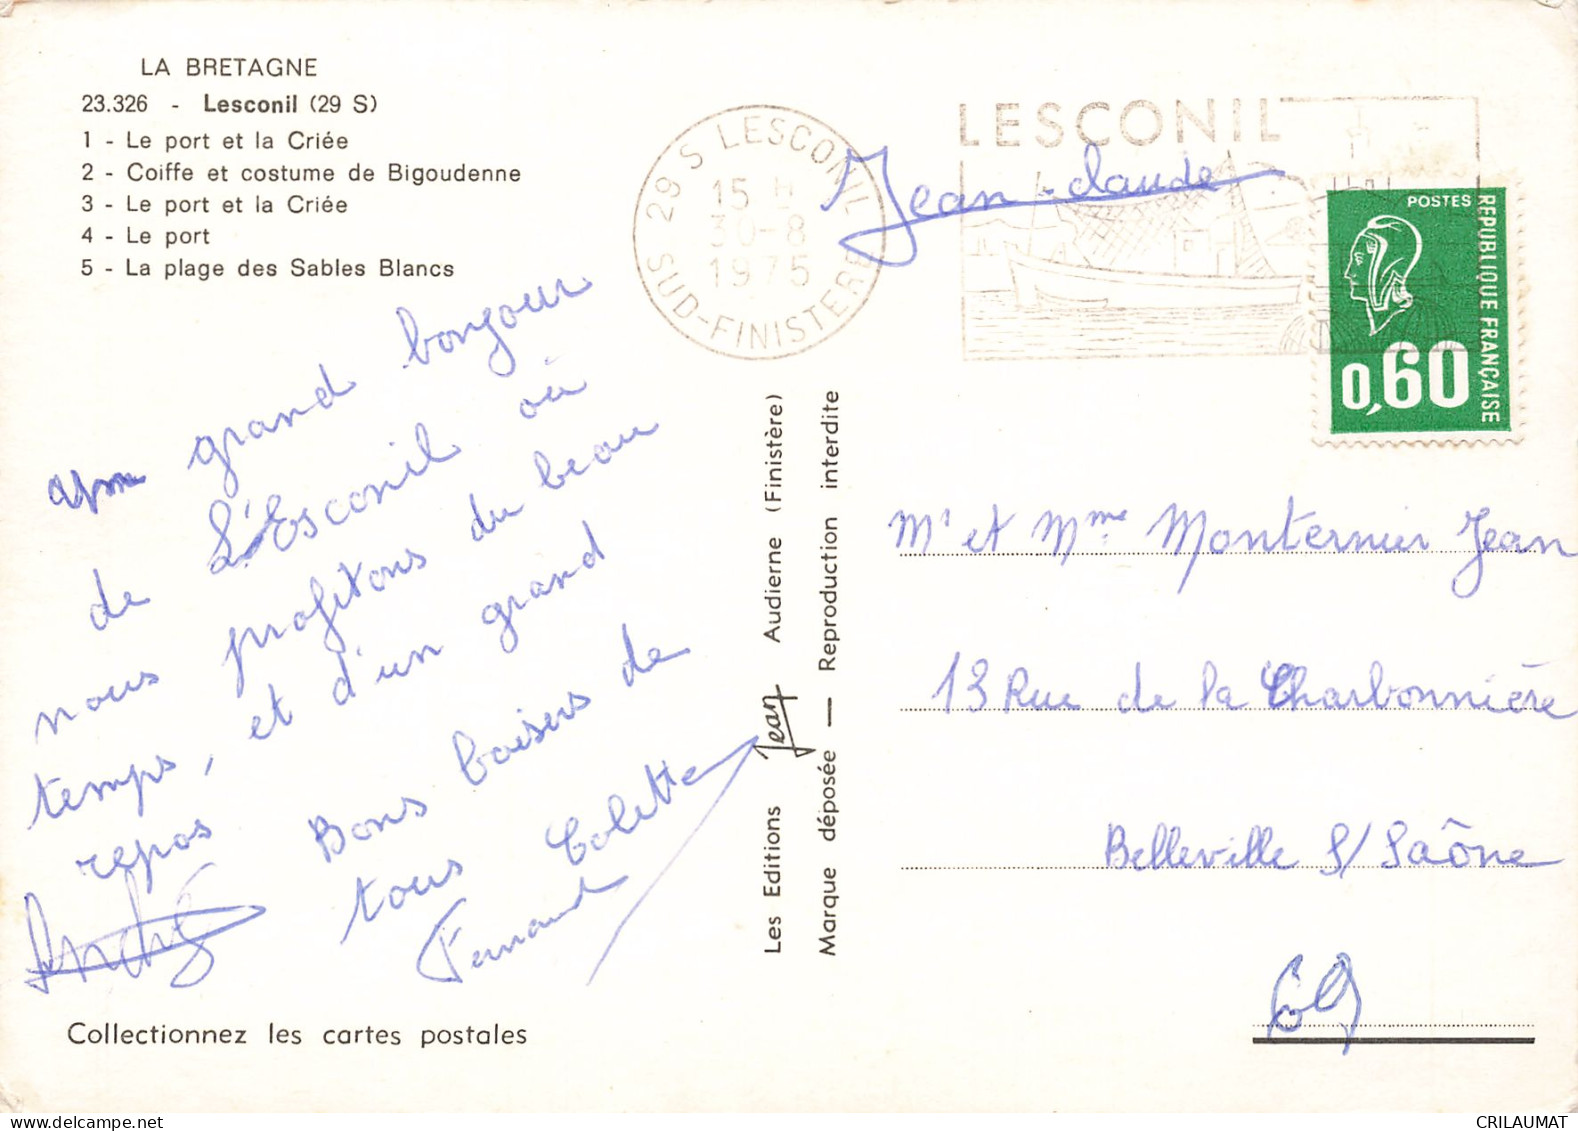 LA BRETAGNE
23.326 - Lesconil (29 S)
1 - Le port et la Criée
2 - Coiffe et costume de Bigoudenne
3 - Le port et la Criée
4 - Le port
5 - La plage des Sables Blancs
29 S LESCONIL
15 H
30-8
1975
SUD-FINISTERE
LESCONIL
Jean-claude
POSTES
REPUBLIQUE FRANÇAISE
0,60
un grand bonjour
de L'Esconil où
nous profitons du beau
temps, et d'un grand
repos Bons baisers de
tous Colette
Fernand
André
Les Editions Jean Audierne (Finistère)
Marque déposée — Reproduction interdite
Mr et Mme Monternier Jean
13 Rue de la Charbonnière
Belleville S/ Saône
69
Collectionnez les cartes postales
CRILAUMAT